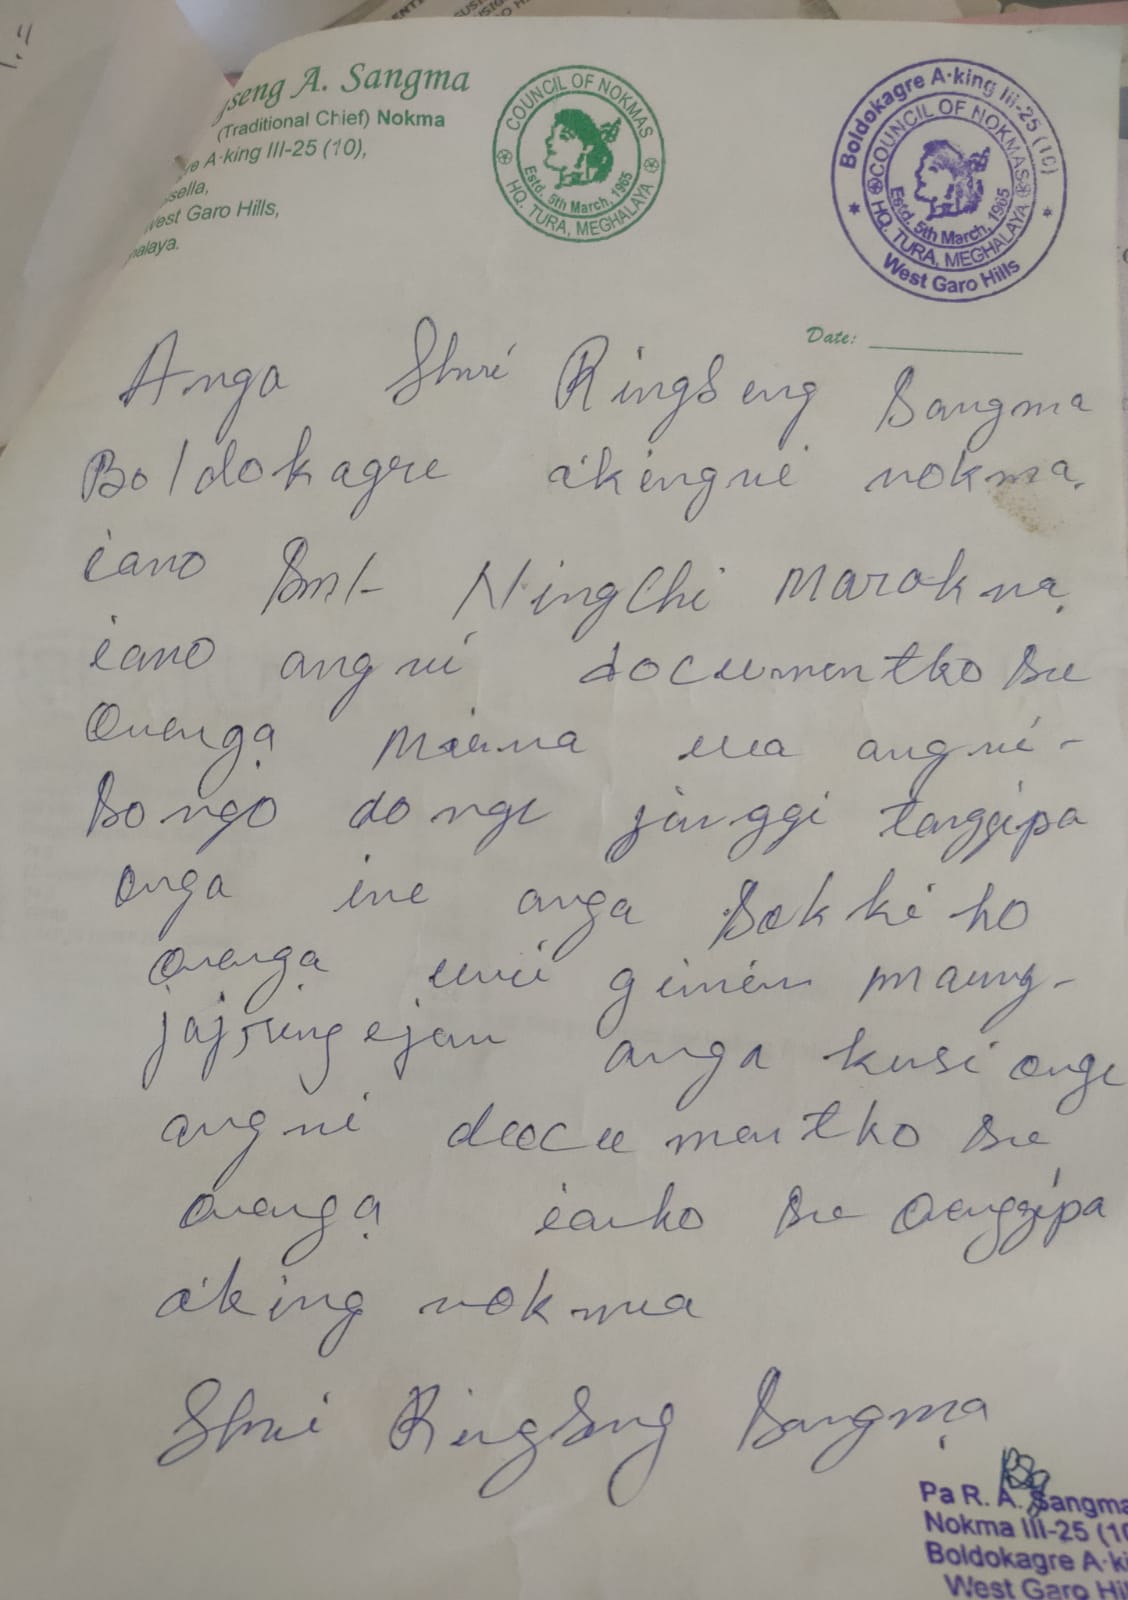 gseng A. Sangma
(Traditional Chief) Nokma
A·king III-25 (10),
sella,
West Garo Hills,
alaya.
COUNCIL OF NOKMAS
Estd. 5th March, 1965
HQ. TURA, MEGHALAYA
Boldokagre A·king III-25 (10)
COUNCIL OF NOKMAS
Estd. 5th March, 1965
HQ. TURA, MEGHALAYA
West Garo Hills
Date:
Anga Shri RingSeng Sangma
Boldokagre a'kingni nokma.
iano Smt NingChi Marakna
iano angni documentko se
Onenga maina ua angni-
Songo donge janggi tanggipa
onga ine anga Sakkiko
onenga uni gimin
anga kusi onge
angni documentko se
onenga iako se Onenggipa
a'king nokma
Shri RingSeng Sangma
Pa R. A. Sangma
Nokma III-25 (10
Boldokagre A·ki
West Garo Hil